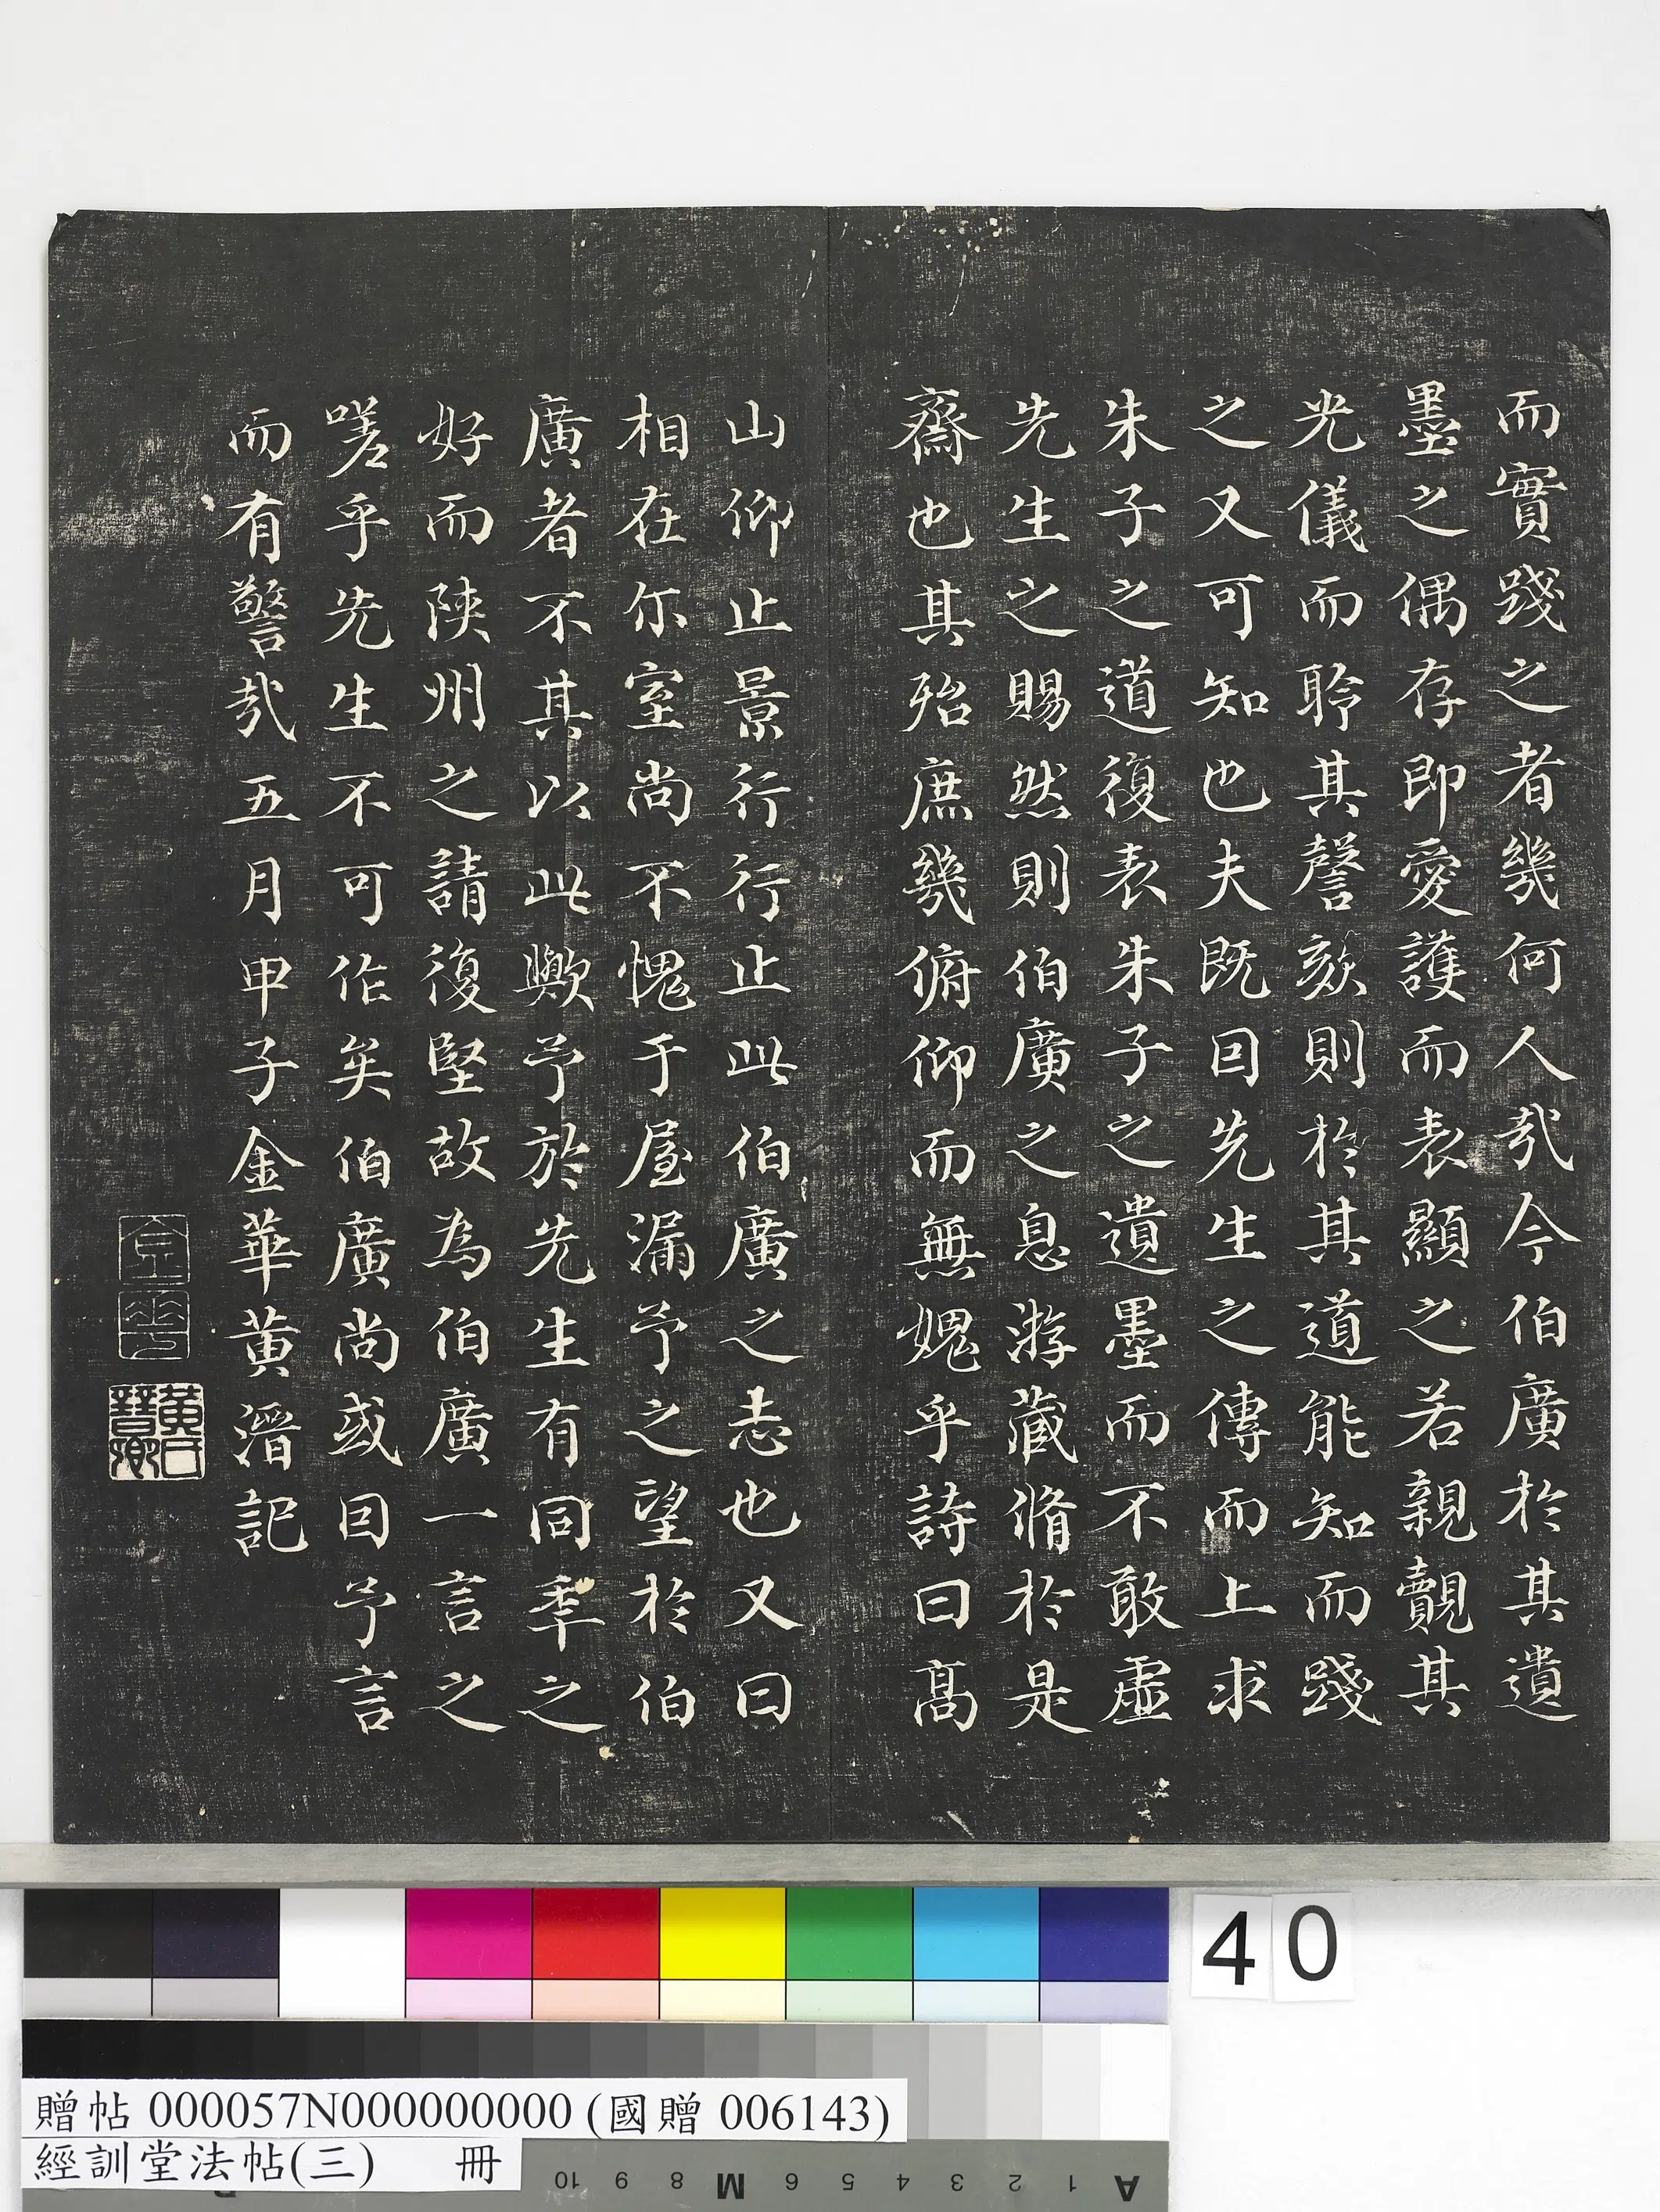 而實踐之者幾何人哉今伯廣於其遺
墨之偶存即愛護而表顯之若親覿其
光儀而聆其謦欬則於其道能知而踐
之又可知也夫既曰先生之傳而上求
朱子之道復表朱子之遺墨而不敢虛
先生之賜然則伯廣之息游藏脩於是
齋也其殆庶幾俯仰而無媿乎詩曰高
山仰止景行行止此伯廣之志也又曰
相在尔室尚不愧于屋漏予之望於伯
廣者不其以此歟予於先生有同年之
好而陝州之請復堅故為伯廣一言之
嗟乎先生不可作矣伯廣尚或因予言
而有警哉五月甲子金華黃溍記
金華
黃氏晉卿
40
贈帖 000057N000000000 (國贈 006143)
經訓堂法帖(三) 冊
10 9 8 M 6 5 4 3 2 1 A